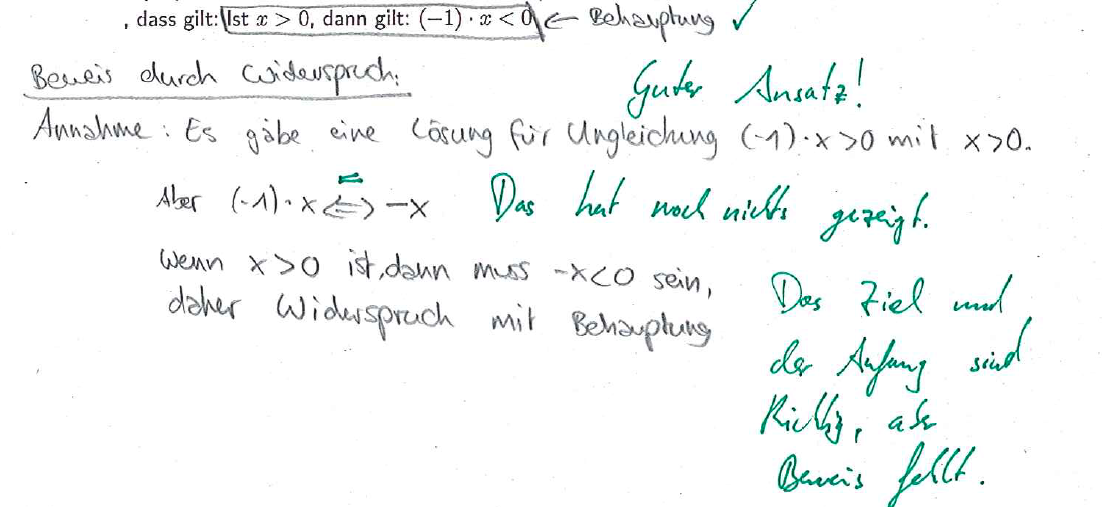 , dass gilt: Ist x > 0, dann gilt: (−1) · x < 0 ← Behauptung ✓
Beweis durch Widerspruch:
Guter Ansatz!
Annahme: Es gäbe eine Lösung für Ungleichung (-1)·x>0 mit x>0.
=
Aber (-1)·x ⇔ -x Das hat noch nichts gezeigt.
Wenn x>0 ist, dann muss -x<0 sein,
daher Widerspruch mit Behauptung
Das Ziel und
der Anfang sind
Richtig, aber
Beweis fehlt.